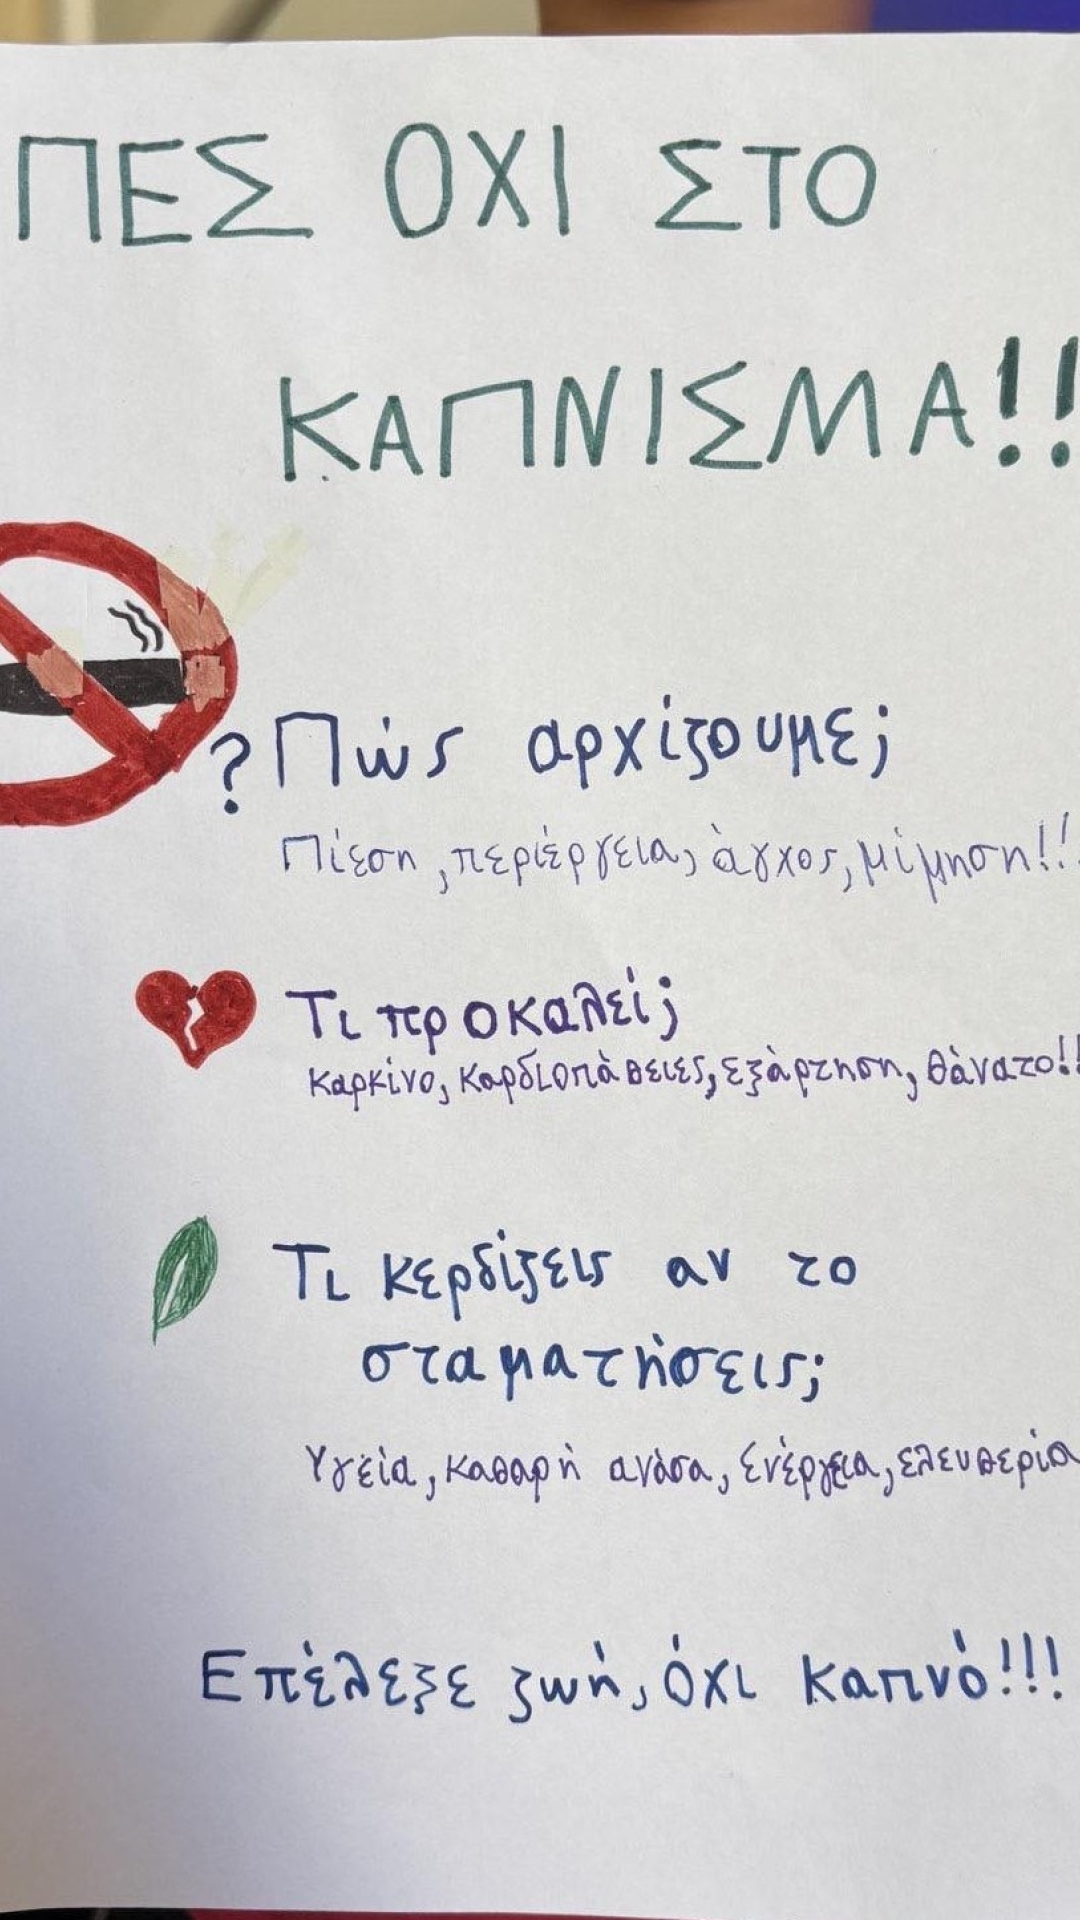 ΠΕΣ ΟΧΙ ΣΤΟ
ΚΑΠΝΙΣΜΑ!!
? Πώς αρχίζουμε;
Πίεση, περιέργεια, άγχος, μίμηση!!
Τι προκαλεί;
Καρκίνο, καρδιοπάθειες, εξάρτηση, θάνατο!!
Τι κερδίζεις αν το
σταματήσεις;
Υγεία, καθαρή ανάσα, ενέργεια, ελευθερία
Επέλεξε ζωή, όχι καπνό!!!